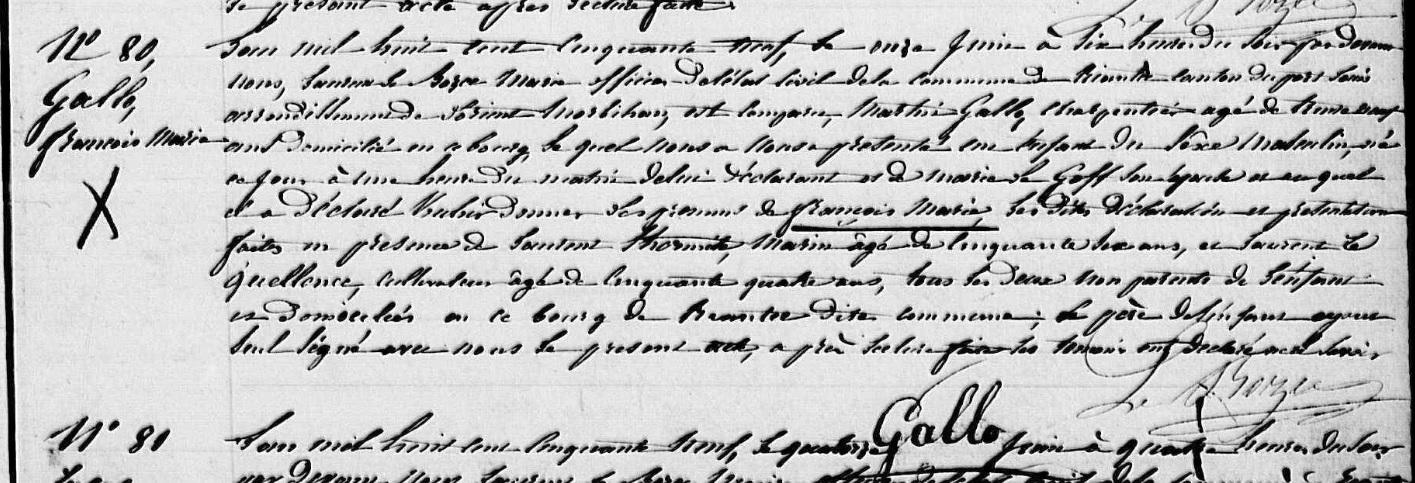 le présent acte après lecture faite.
N° 80,
Gallo,
François Marie
L'an mil huit cent cinquante neuf, le onze Juin à six heures du soir, par devant
nous, Laurent Le Maire officier de l'état civil de la commune de Riantec canton du port Louis
arrondissement de Lorient Morbihan, est comparu, Mathurin Gallo, charpentier âgé de trente neuf
ans domicilié en ce bourg, le quel nous a nous présenté un Enfant du Sexe Masculin, né
ce jour à une heure du matin de lui déclarant et de Marie Le Goff son épouse et au quel
il a déclaré vouloir donner les prénoms de François Marie, les dites déclaration et présentation
faites en présence de Laurent Marin âgé de Cinquante ans, et Laurent Le
Quellence, cultivateur âgé de Cinquante quatre ans, tous les deux non parents de l'enfant
et domiciliés en ce bourg de Riantec dite commune; le père de l'enfant ayant
seul signé avec nous le présent acte, après lecture faite les témoins ont déclaré ne le savoir
Gallo
N° 81
L'an mil huit cent cinquante neuf, le quatorze Juin à quatre heures du soir
par devant nous Laurent Le